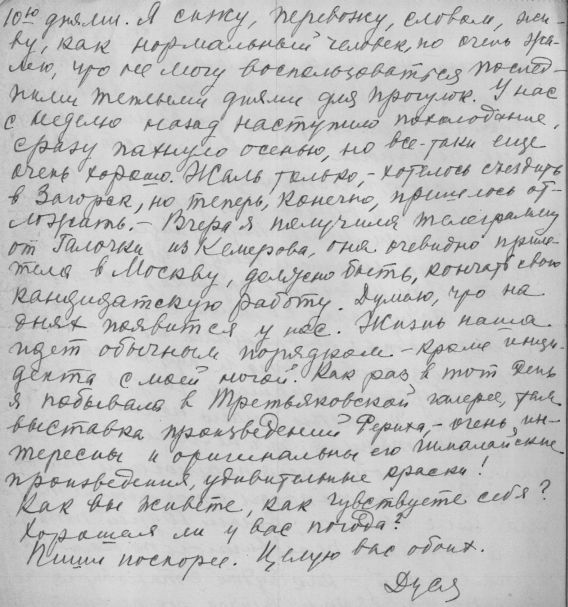 10ю днями. Я сижу, перевожу, словом, жи-
ву, как нормальный человек, но очень жа-
лею, что не могу воспользоваться послед-
ними теплыми днями для прогулок. У нас
с неделю назад наступило похолодание,
сразу пахнуло осенью, но все-таки еще
очень хорошо. Жаль только, - хотелось съездить
в Загорск, но теперь, конечно, пришлось от-
ложить. - Вчера я получила телеграмму
от Галочки из Кемерова, она очевидно приле-
тела в Москву, должно быть, кончать свою
кандидатскую работу. Думаю, что на
днях появится у нас. Жизнь наша
идет обычным порядком - кроме инци-
дента с моей ногой. Как раз в тот день
я побывала в Третьяковской галерее, там
выставка произведений Рериха, - очень ин-
тересны и оригинальны его гималайские
произведения, удивительные краски!
Как вы живете, как чувствуете себя?
Хорошая ли у вас погода?
Пиши поскорее. Целую вас обоих.
Дуся